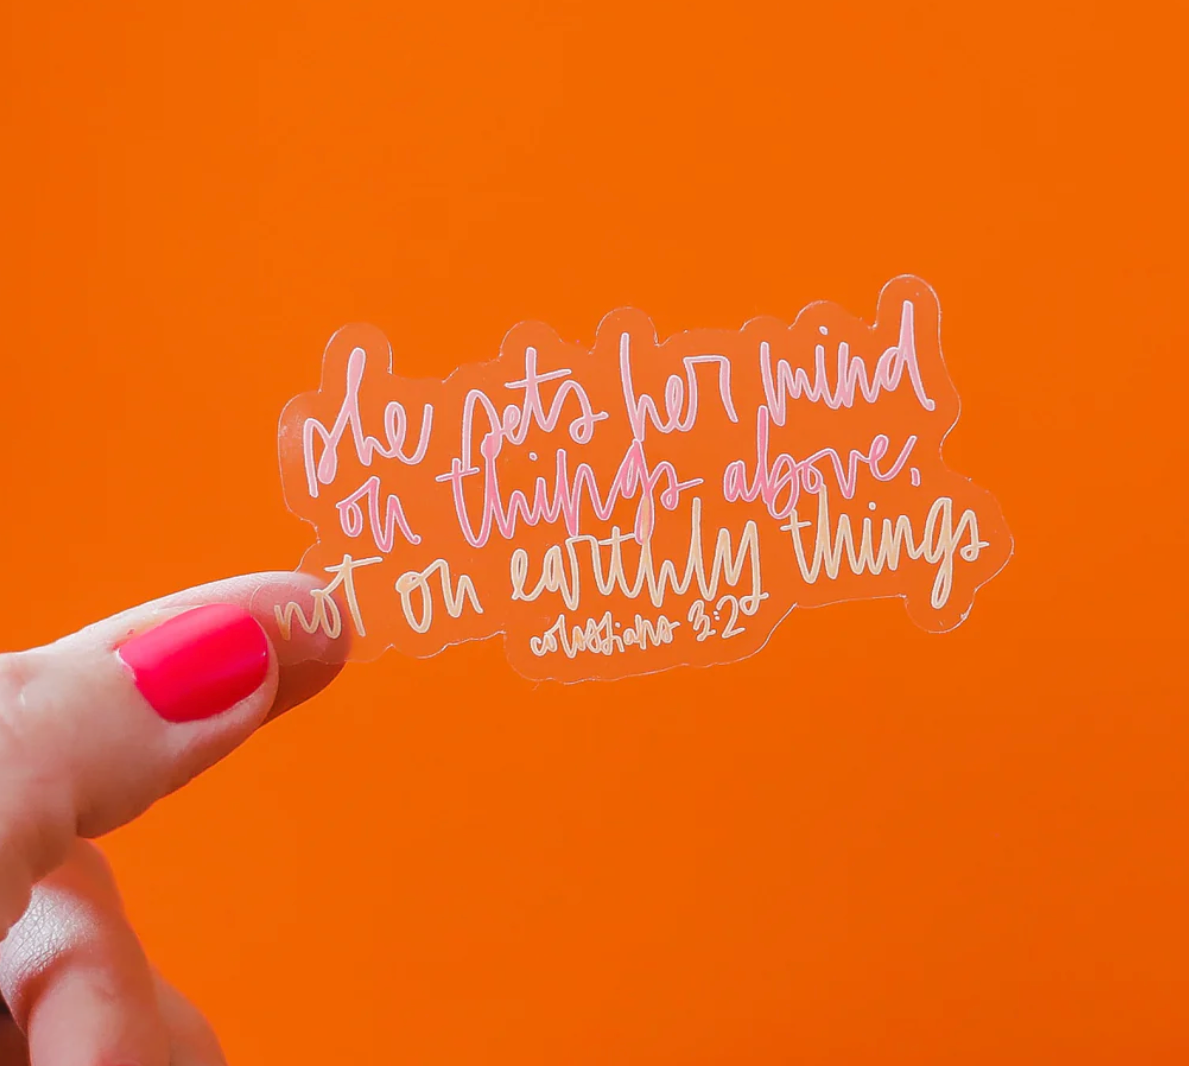 she sets her mind
on things above,
not on earthly things
colossians 3:2